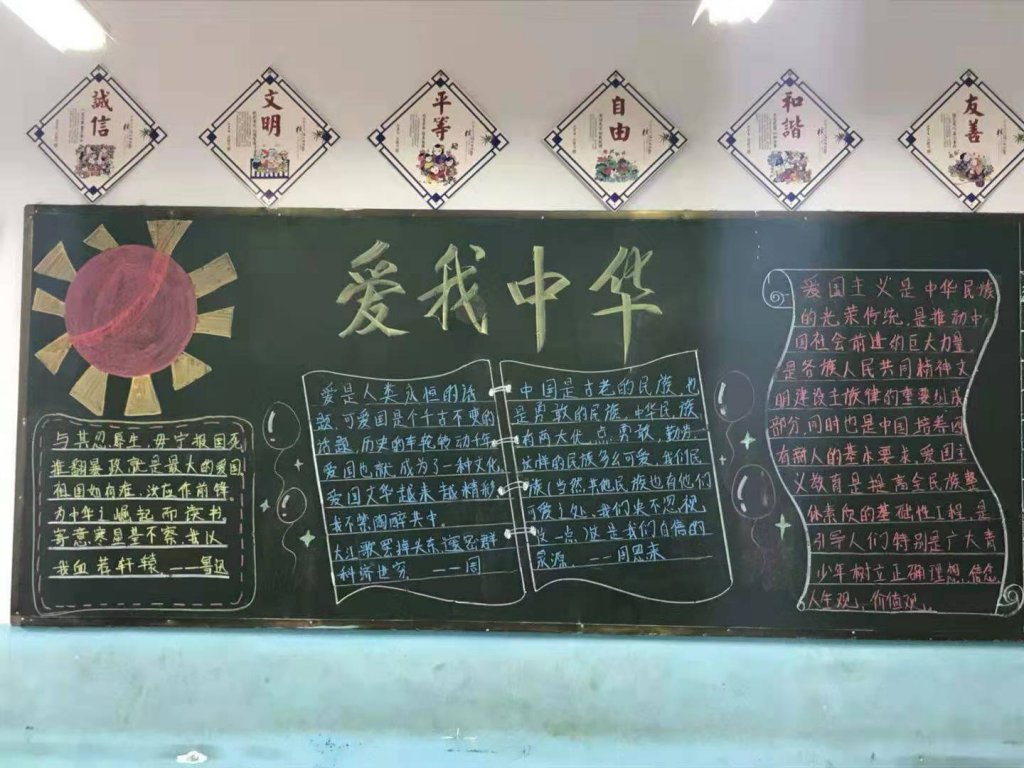 誠信
文明
平等
自由
和諧
友善
爱我中华
与其忍辱生,毋宁报国死
推翻暴政就是最大的爱国
祖国如有难,汝应作前锋
为中华之崛起而读书
寄意寒星荃不察,我以
我血荐轩辕 ——鲁迅
爱是人类永恒的话
题,可爱国是个千古不变的
话题,历史的车轮转动千年
爱国也就成为了一种文化,
爱国文华越来越精彩
我不禁陶醉其中.
大江歌罢掉头东,邃密群
科济世穷 ——周
中国是古老的民族,也
是勇敢的民族.中华民族
有两大优点:勇敢,勤劳.
这样的民族多么可爱,我们民
族(当然其他民族也有他们
可爱之处,我们决不忽视
这一点)这是我们自信的
泉源. ——周恩来
爱国主义是中华民族
的光荣传统,是推动中
国社会前进的巨大力量
是各族人民共同精神文
明建设主旋律的重要组成
部分,同时也是中国培养四
有新人的基本要求,爱国主
义教育是提高全民族整
体素质的基础性工程,是
引导人们特别是广大青
少年树立正确理想,信念
人生观,价值观.